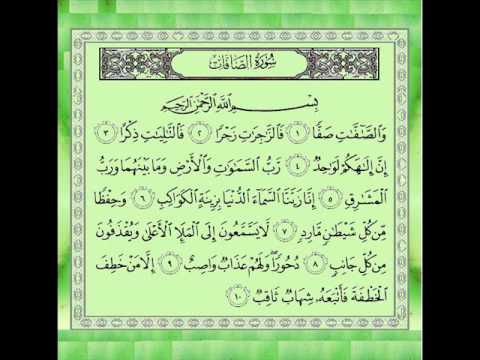 سُورَةُ الصَّافَّاتِ
بِسْمِ اللَّهِ الرَّحْمَٰنِ الرَّحِيمِ
وَالصَّٰٓفَّٰتِ صَفًّا ١ فَالزَّٰجِرَٰتِ زَجْرًا ٢ فَالتَّٰلِيَٰتِ ذِكْرًا ٣
إِنَّ إِلَٰهَكُمْ لَوَٰحِدٌ ٤ رَبُّ السَّمَٰوَٰتِ وَالْأَرْضِ وَمَا بَيْنَهُمَا وَرَبُّ
الْمَشَٰرِقِ ٥ إِنَّا زَيَّنَّا السَّمَآءَ الدُّنْيَا بِزِينَةٍ الْكَوَاكِبِ ٦ وَحِفْظًا
مِّن كُلِّ شَيْطَٰنٍ مَّارِدٍ ٧ لَا يَسَّمَّعُونَ إِلَى الْمَلَإِ الْأَعْلَىٰ وَيُقْذَفُونَ
مِن كُلِّ جَانِبٍ ٨ دُحُورًا وَلَهُمْ عَذَابٌ وَاصِبٌ ٩ إِلَّا مَنْ خَطِفَ
الْخَطْفَةَ فَأَتْبَعَهُۥ شِهَابٌ ثَاقِبٌ ١٠